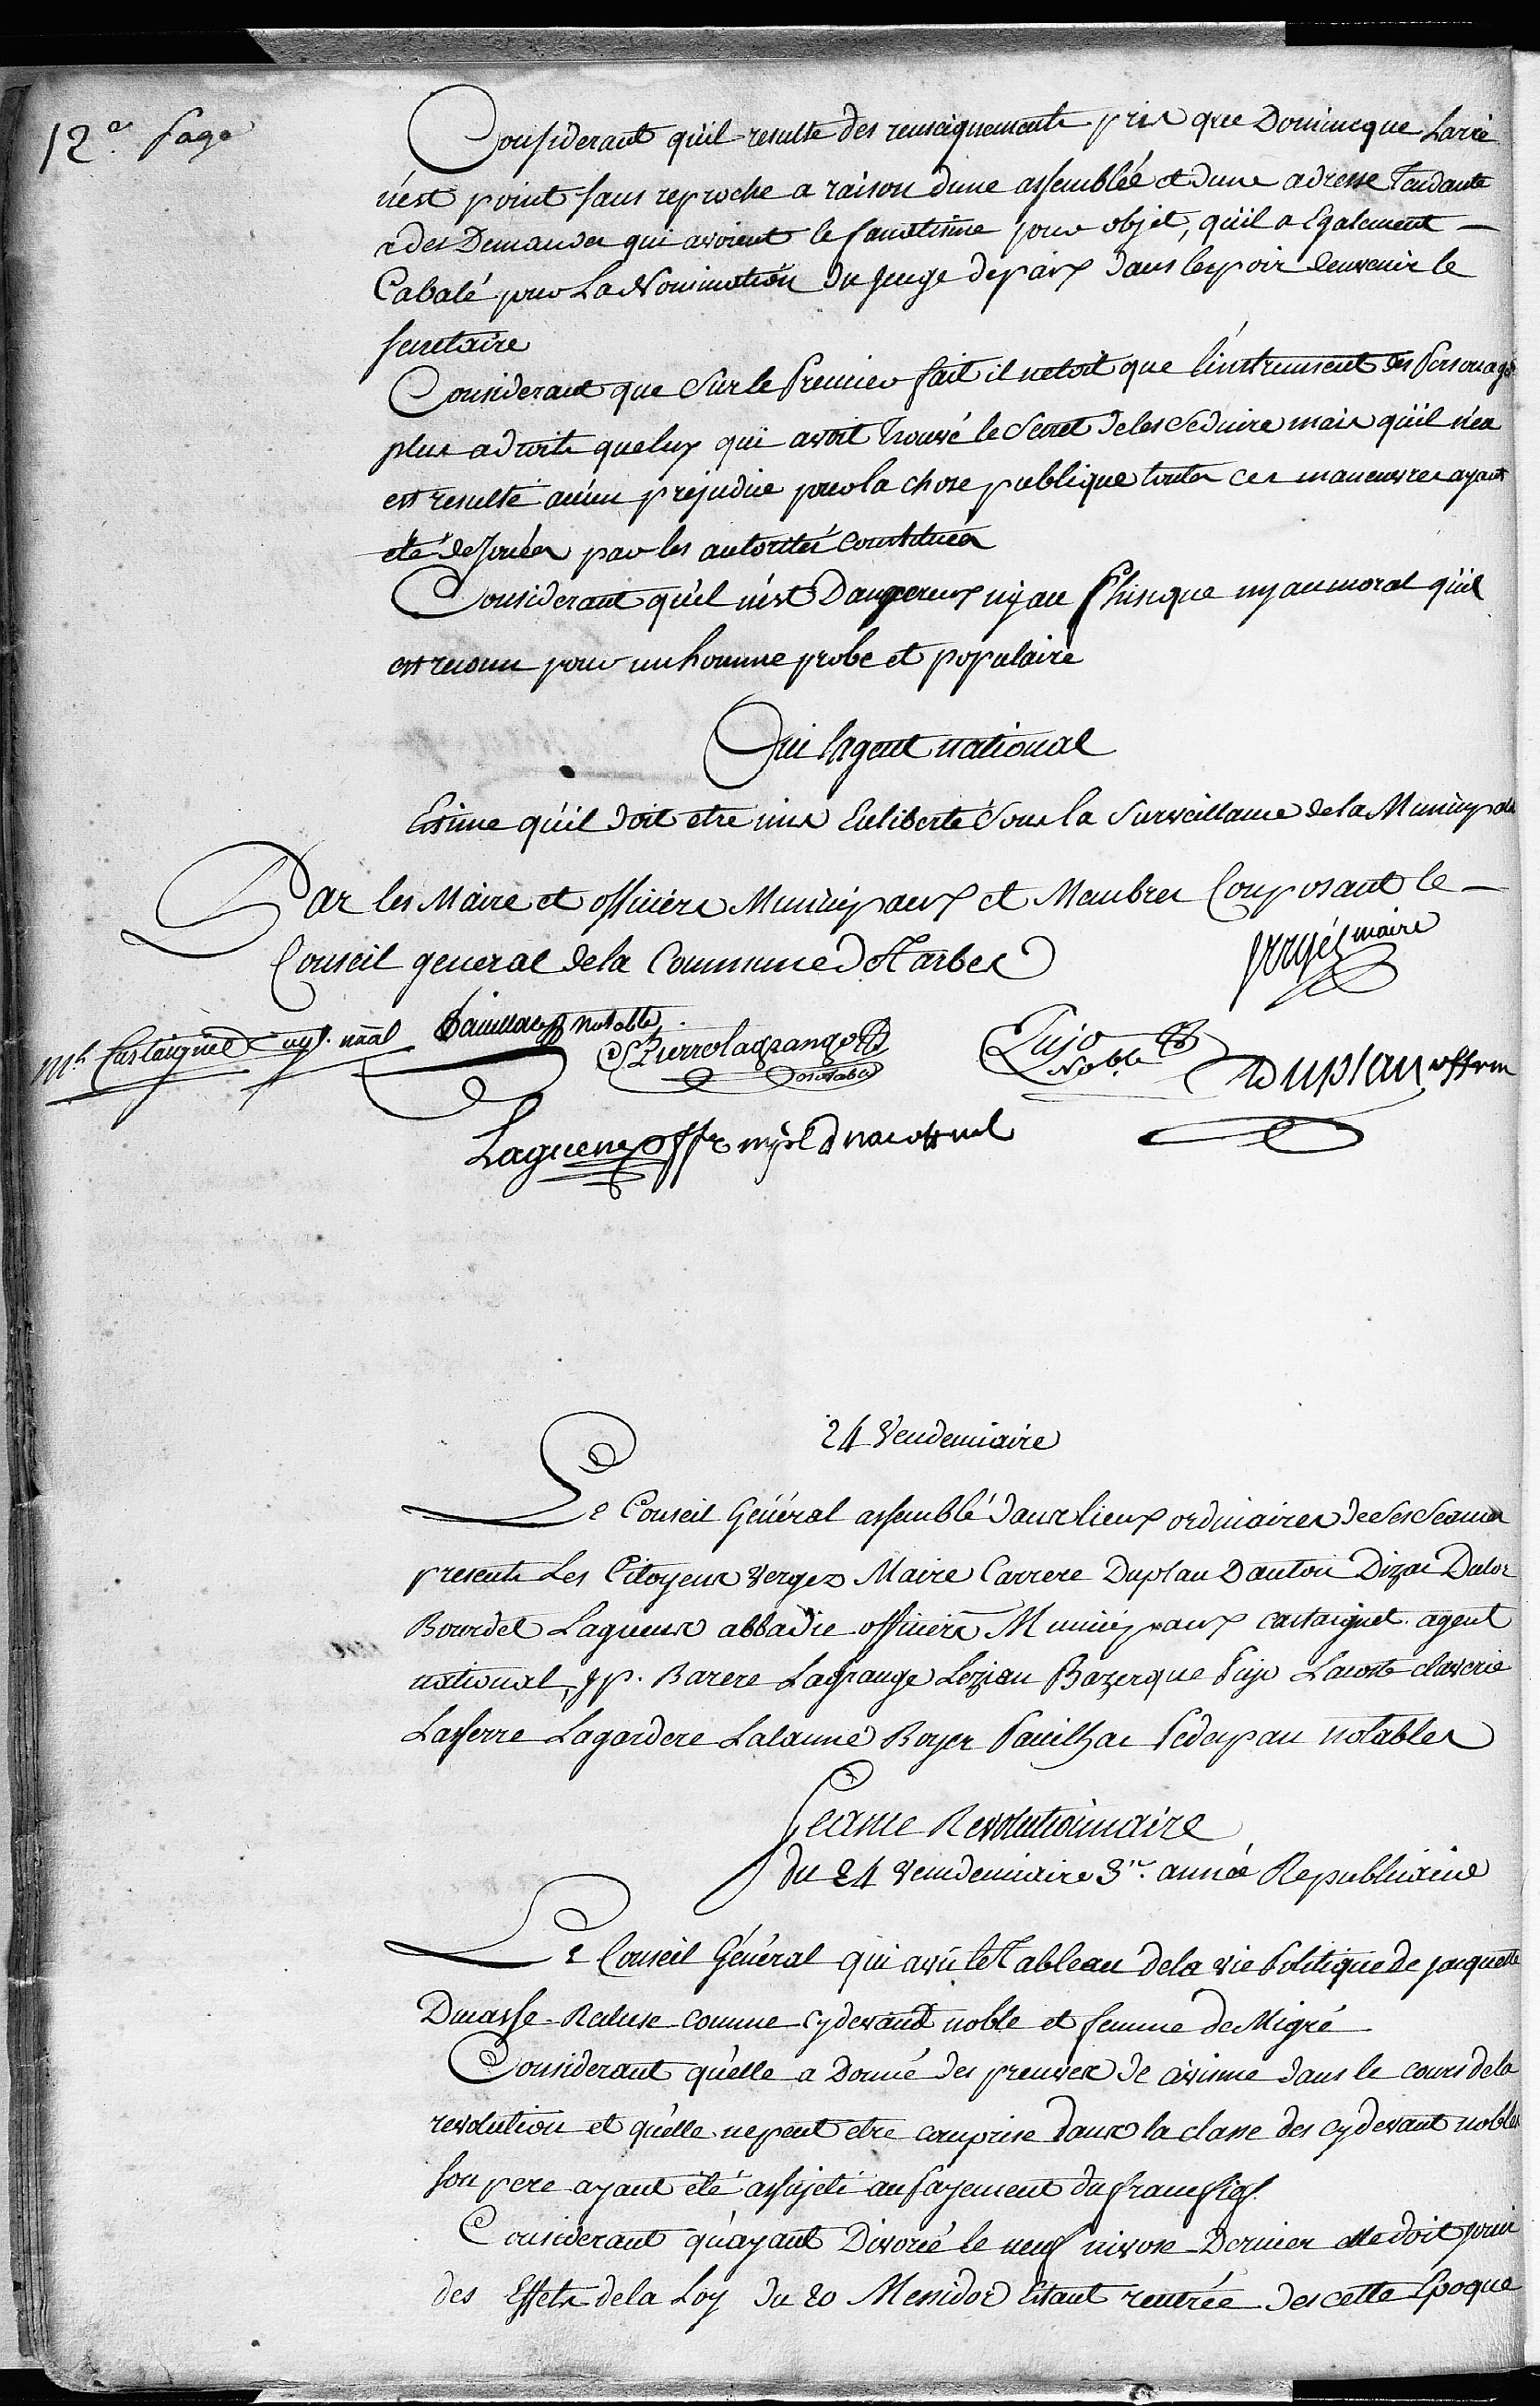 12.e page
Considerant qu'il resulte des renseignements pris que Dominique Larré
n'est point sans reproche a raison dune assemblée et dune adresse Tendante
a des Demandes qui avoient le fanatisme pour objet, qu'il a Egalement —
Cabalé pour La Nomination du Juge depaix dans lespoir denvenir le
secretaire
Considerant que Sur le Premier fait il netoit que l'instrument des Personages
plus adroits queluy qui avoit Trouvé le Secret deles Seduire mais qu'il n'en
est resulté aucun prejudice pour la chose publique toutes ces maneuvres ayant
eté dejouées par les autorités Constituées
Considerant qu'il n'est Dangereux ny au Phisique ny au moral qu'il
est reconu pour un homme probe et populaire
Oui lagent national
Estime qu'il doit etre mis En liberté Sous la Surveillance dela Municipalité
Par les Maire et officiers Municipaux et Membres Composant le —
Conseil general dela Commune de Tarbes
Vergés maire
Castaignet agt. naal
Pauilhac notable
Pierre lagrange
notable
Pujo
Noble
Duplan off mu
Lagueux offr mpl
24 Vendemiaire
Le Conseil Général assemblé dans lieux ordinaires de Ses Seances
presents Les Citoyens Vergez Maire Carrere Duplau Dautoir Dizac Dulor
Bourdet Lagueux abbadie officiers Municipaux castaignet agent
national, jp. Barere Lagrange Lezian Bazerque Pujo Lacoste claverie
Lasserre Lagardere Lalanne Royer Pauilhac Pedepau notables
Seance Revolutionnaire
du 24 Vendemiaire 3.e année Republicaine
Le Conseil Général qui a vû le Tableau dela vie Politique de jaquette
Ducasse Recluse comme cydevant noble et femme de Migré
Considerant qu'elle a Donné des preuves de civisme dans le cours dela
revolution et qu'elle nepeut etre comprise dans la classe des cydevant nobles
son pere ayant été assujeti au Payement du franc fief.
Considerant qu'ayant Divorcé le neuf nivose Dernier elle doit jouir
des Effets dela Loy du 20 Messidor Etant rentrée des cette Epoque